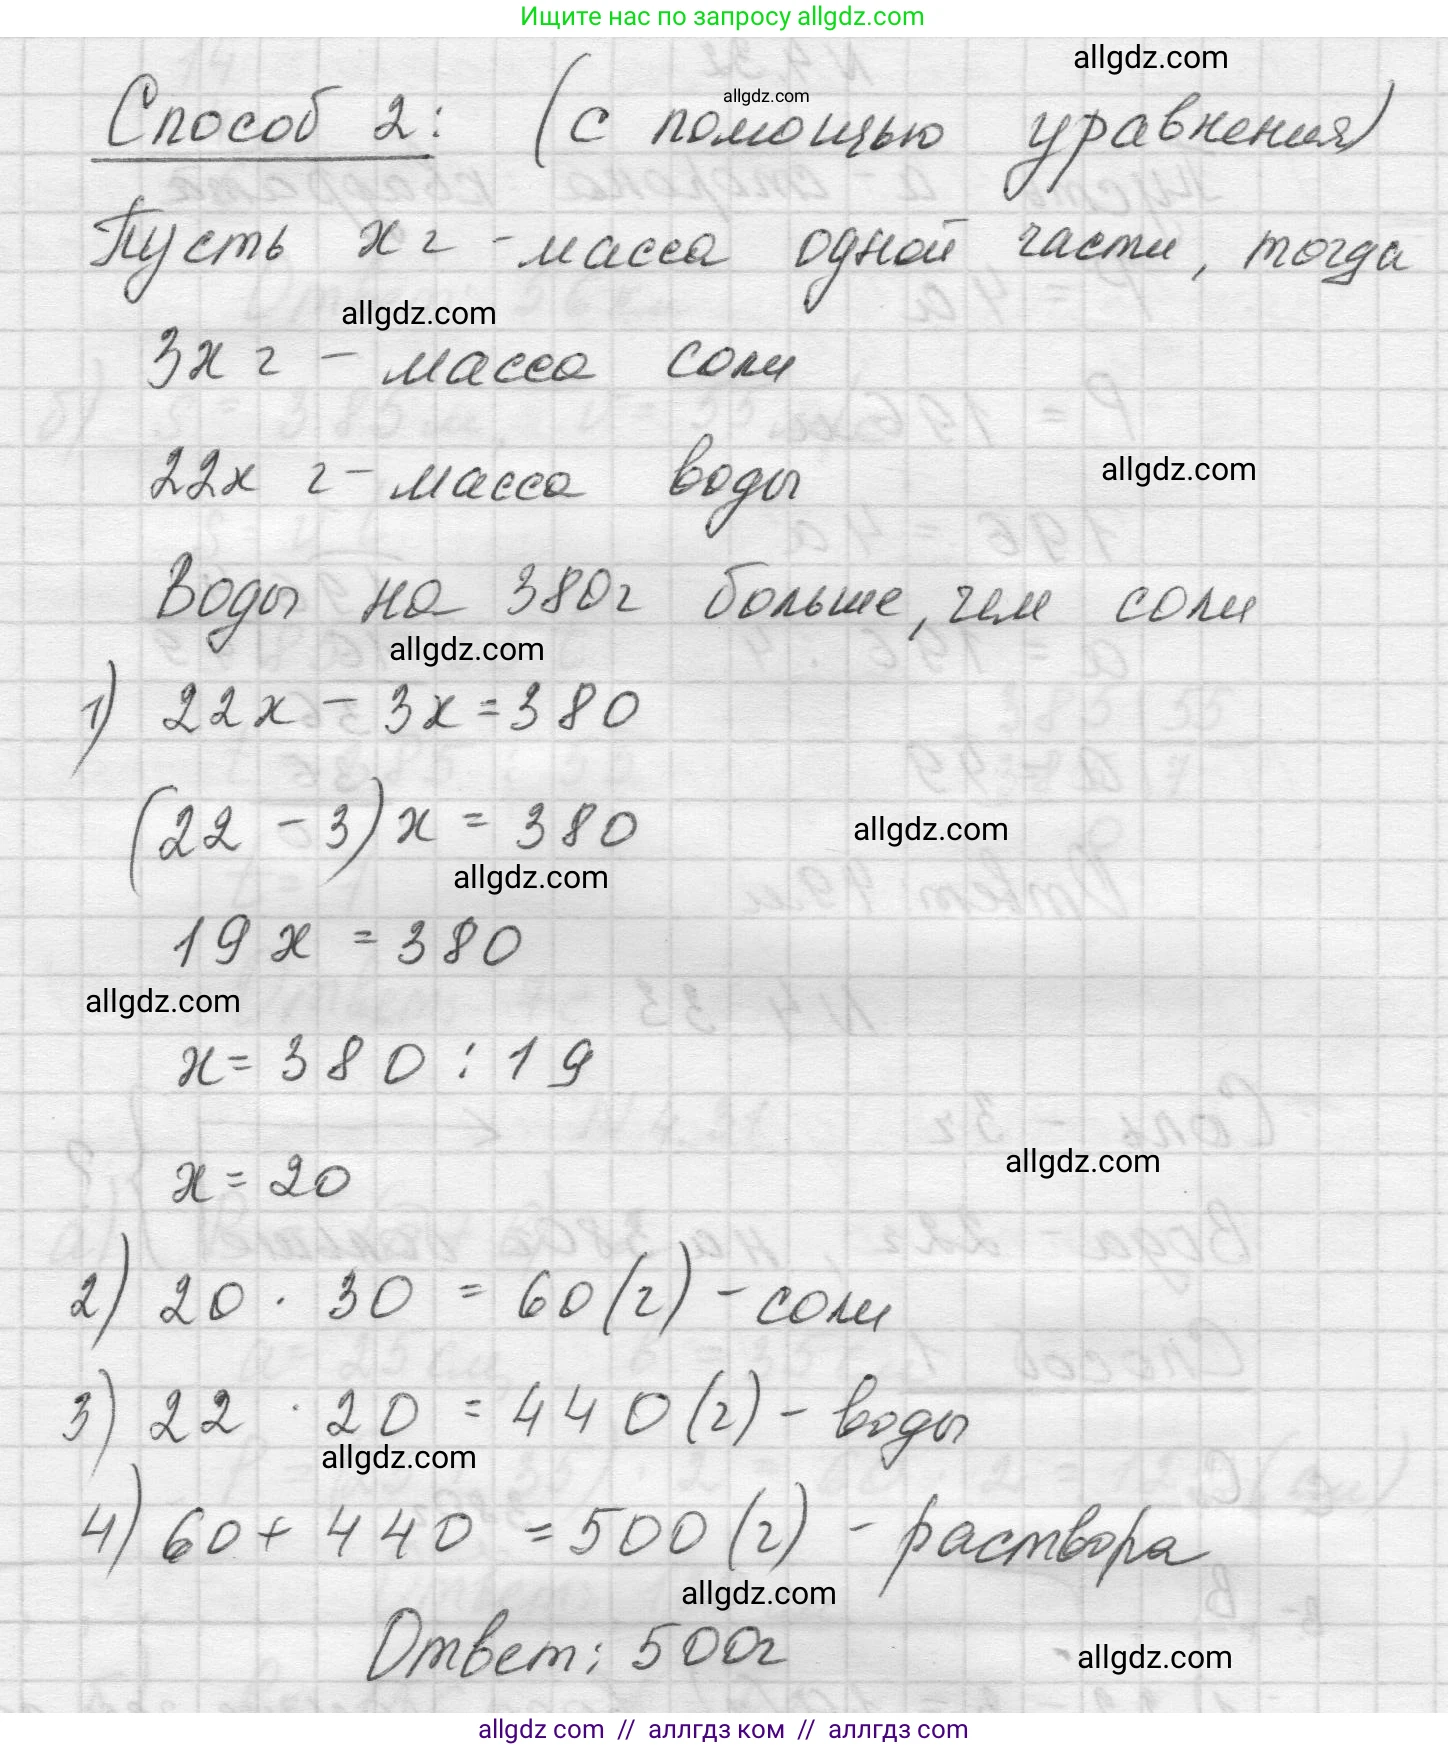 Ищите нас по запросу allgdz.com
allgdz.com
allgdz.com
Способ 2: (с помощью уравнения)
Пусть х г - масса одной части, тогда
allgdz.com
3х г - масса соли
22х г - масса воды
allgdz.com
Воды на 380г больше, чем соли
allgdz.com
1) 22х - 3х = 380
(22 - 3)х = 380
allgdz.com
allgdz.com
19х = 380
allgdz.com
х = 380 : 19
х = 20
allgdz.com
2) 20 · 30 = 60 (г) - соли
3) 22 · 20 = 440 (г) - воды
allgdz.com
4) 60 + 440 = 500 (г) - раствора
allgdz.com
Ответ: 500г
allgdz.com
allgdz com // аллгдз ком // аллгдз com